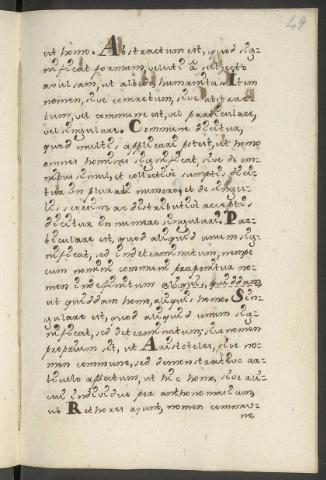 49
ut homo. Abstractum est, quod sig-
nificat formam, veluti a subjecto
avulsam, ut albedo, humanitas. Item
nomen, sive concretum, sive abstrac-
tum, vel commune est, vel particulare,
vel singulare. Commune dicitur,
quod multis applicari potest, ut homo
omnes homines significat, sive de om-
nibus simul, et collective sumptis dica-
tur in plurali numero, et de singu-
lis seorsim, ac distributive acceptis
dicitur in numero singulari. Par-
ticulare est, quod aliquid unum sig-
nificat, sed indeterminatum, nempe
cum nomini communi praeponitur no-
men indefinitum aliquis, quiddam,
ut quiddam homo, aliquis homo. Sin-
gulare est, quod aliquid unum sig-
nificat, sed determinatum; sive nomen
proprium sit, ut Aristoteles, sive no-
men commune, sed demonstrativo ar-
ticulo affectum, ut hic homo, sive ali-
cui individuo per anthonomasiam,
ut Rethores ajunt, nomen commu-
ne